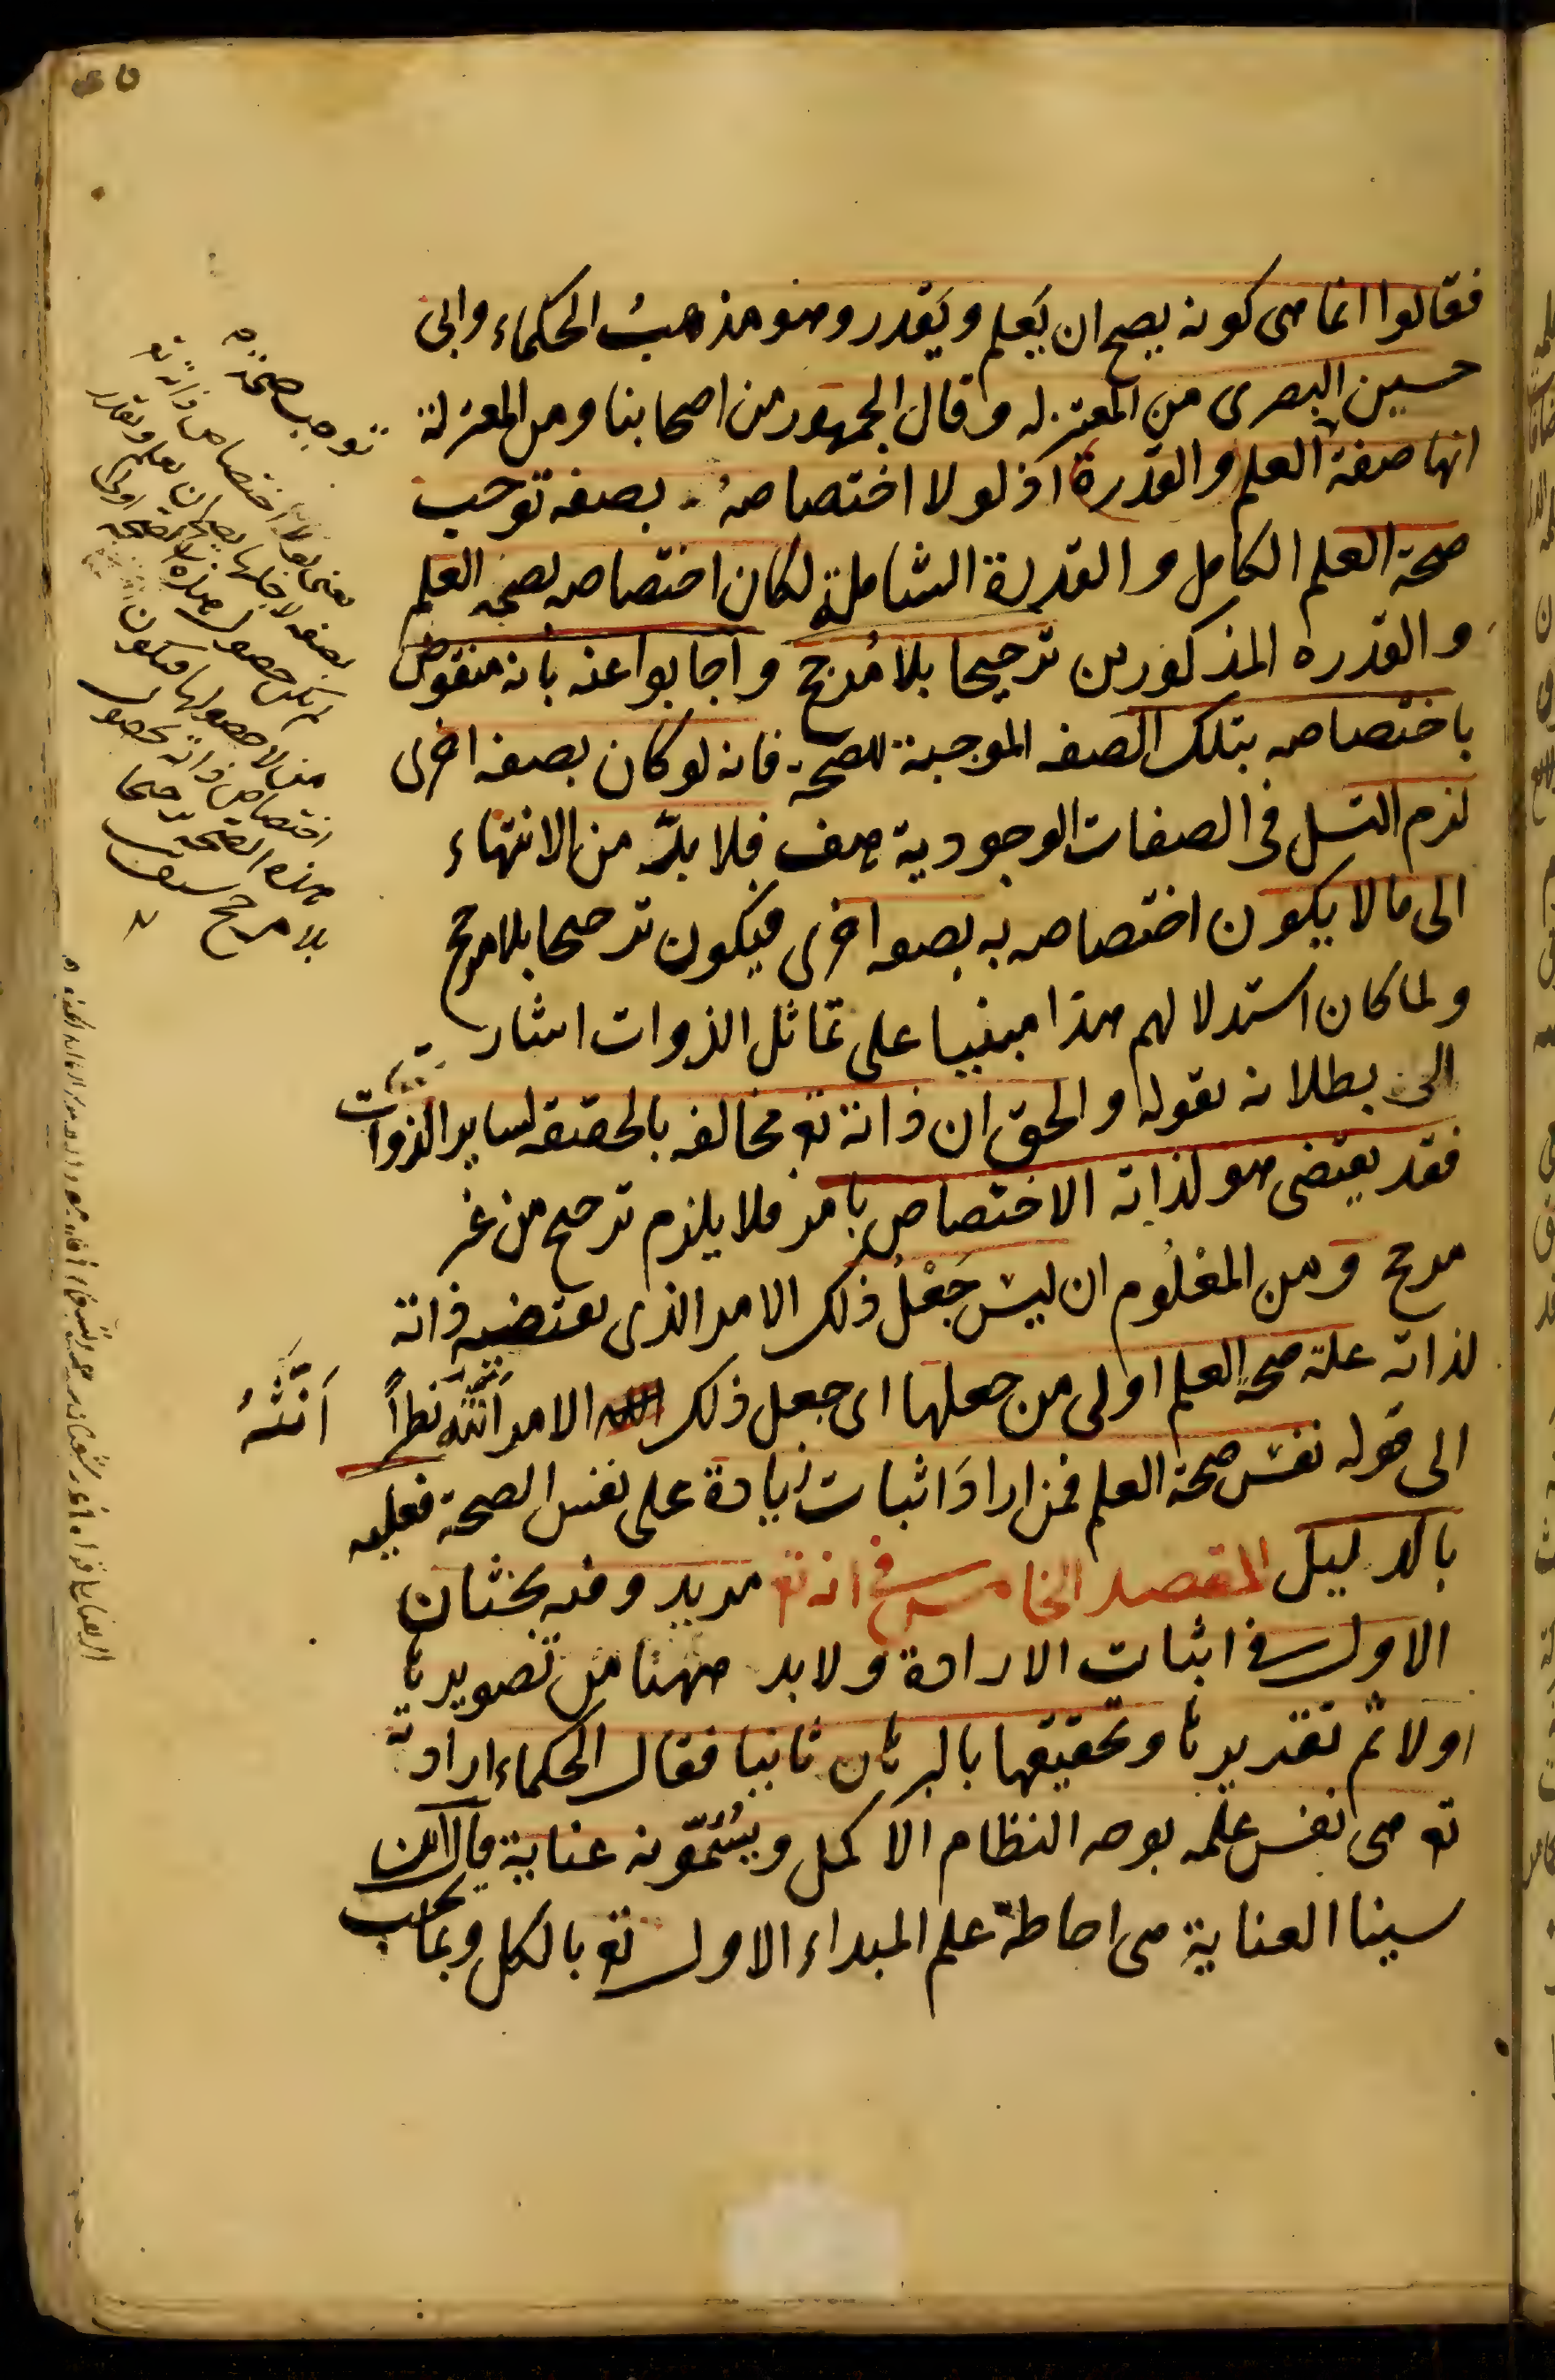 فقالوا انما هى كونه يصح ان يَعلم ويَقدر وهو مذهبُ الحكماء وابى
حسين البصرى من المعتزله وقال الجمهور من اصحابنا ومن المعتزلة
انها صفة العلم والقدرة اذ لو لا اختصاصهُ بصفه توجب
صحة العلم الكامل والقدرة الشاملة لكان اختصاصه بصحه العلم
والقدره المذكورين ترجيحا بلا مُرجح واجابوا عنه بانه منقوض
باختصاصه بتلك الصفه الموجبة للصحه فانه لو كان بصفه اخرى
لزم التسل فى الصفات الوجودية هف فلا بدّ من الانتهاء
الى ما لا يكون اختصاصه به بصفه اخرى فيكون ترجيحا بلا مرجح
ولما كان استدلالهم هذا مبنيا على تماثل الذوات اشار
الى بطلانه بقوله والحق ان ذاته تع مخالفه بالحقيقه لساير الذوات
فقد يقتضى هو لذاته الاختصاص بامر فلا يلزم ترجيح من غير
مرجح ومن المعْلُوم ان ليسَ جَعْلُ ذلك الامر الذى يقتضيه ذاته
لذاته علة صحة العلم اولى من جعلها اى جعل ذلك الامر انّثه نظراً
اَنَّثهُ
الى قوله نفسَ صحة العلم فمن ارادَ اثبات زيادة على نفس الصحة فعليه
بالدليل المقصد الخامس فى انه تع مريد وفيه بحثان
الاول فى اثبات الارادة ولا بد ههنا من تصويرها
اولا ثم تقديرها وتحقيقها بالبرهان ثانيا فقال الحكماء ارادته
تع هى نفس علمه بوجه النظام الاكمل ويُسَمّونه عناية قال ابن
سينا العناية هى احاطة علم المبداء الاول تع بالكل وبما يجب
توجب صحة
يعنى لولا اختصاص ذاته تع
بصفه لاجلها يصح ان يعلم ويقدر
لم يكن حصول هذه الصحه اولى
من لا حصولها فيكون
اختصاص ذاته بحصول
هذه الصحة ترجيحا
بلا مرجح